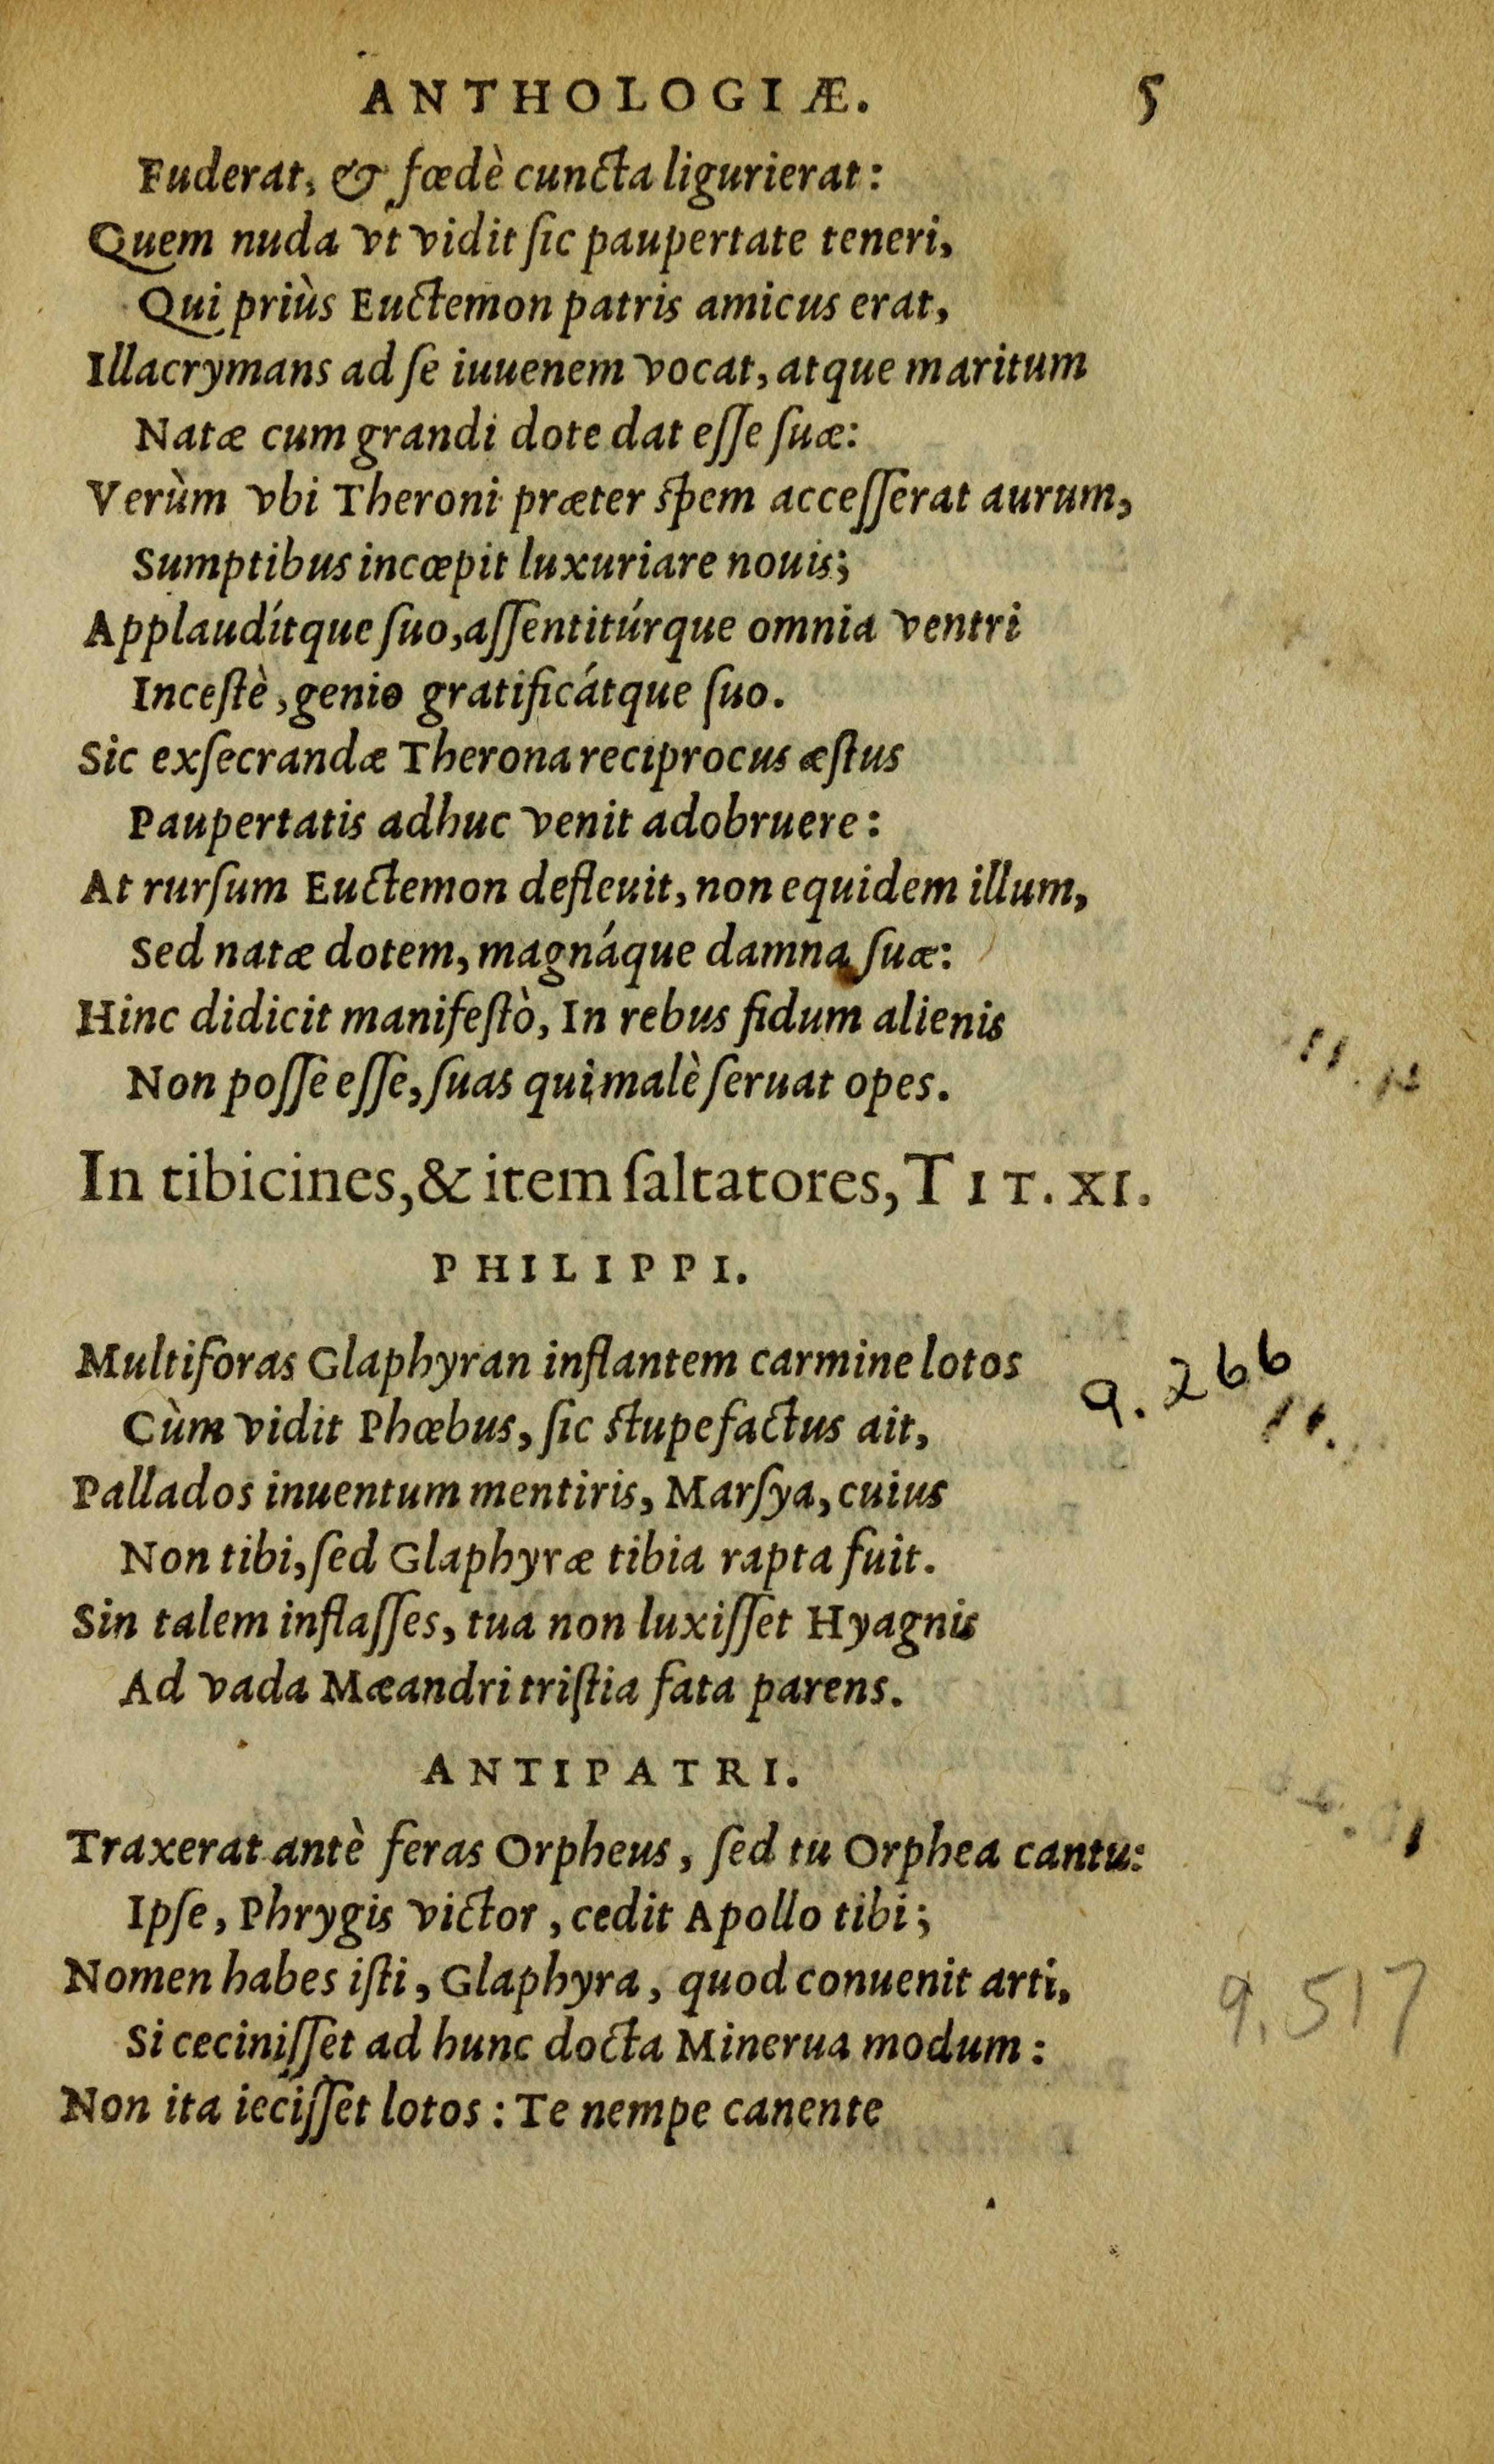 ANTHOLOGIÆ. 5
Fuderat, & fœdè cuncta ligurierat:
Quem nuda vt vidit ſic paupertate teneri,
Qui priùs Euctemon patris amicus erat,
Illacrymans ad ſe iuuenem vocat, atque maritum
Natæ cum grandi dote dat eſſe ſuæ:
Verùm vbi Theroni præter ſpem acceſſerat aurum,
Sumptibus incœpit luxuriare nouis;
Applaudítque ſuo, aſſentitúrque omnia ventri
Inceſtè, genio gratificátque ſuo.
Sic exſecrandæ Therona reciprocus æſtus
Paupertatis adhuc venit adobruere:
At rurſum Euctemon defleuit, non equidem illum,
Sed natæ dotem, magnáque damna ſuæ:
Hinc didicit manifeſtò, In rebus fidum alienis
Non poſſe eſſe, ſuas qui malè ſeruat opes.
In tibicines, & item ſaltatores, TIT. XI.
PHILIPPI.
Multiforas Glaphyran inflantem carmine lotos
9.266
Cùm vidit Phœbus, ſic ſtupefactus ait,
11.
Pallados inuentum mentiris, Marſya, cuius
Non tibi, ſed Glaphyræ tibia rapta fuit.
Sin talem inflaſſes, tua non luxiſſet Hyagnis
Ad vada Mæandri triſtia fata parens.
ANTIPATRI.
Traxerat antè feras Orpheus, ſed tu Orphea cantu:
Ipſe, Phrygis victor, cedit Apollo tibi;
Nomen habes iſti, Glaphyra, quod conuenit arti,
9.517
Si ceciniſſet ad hunc docta Minerua modum:
Non ita ieciſſet lotos: Te nempe canente